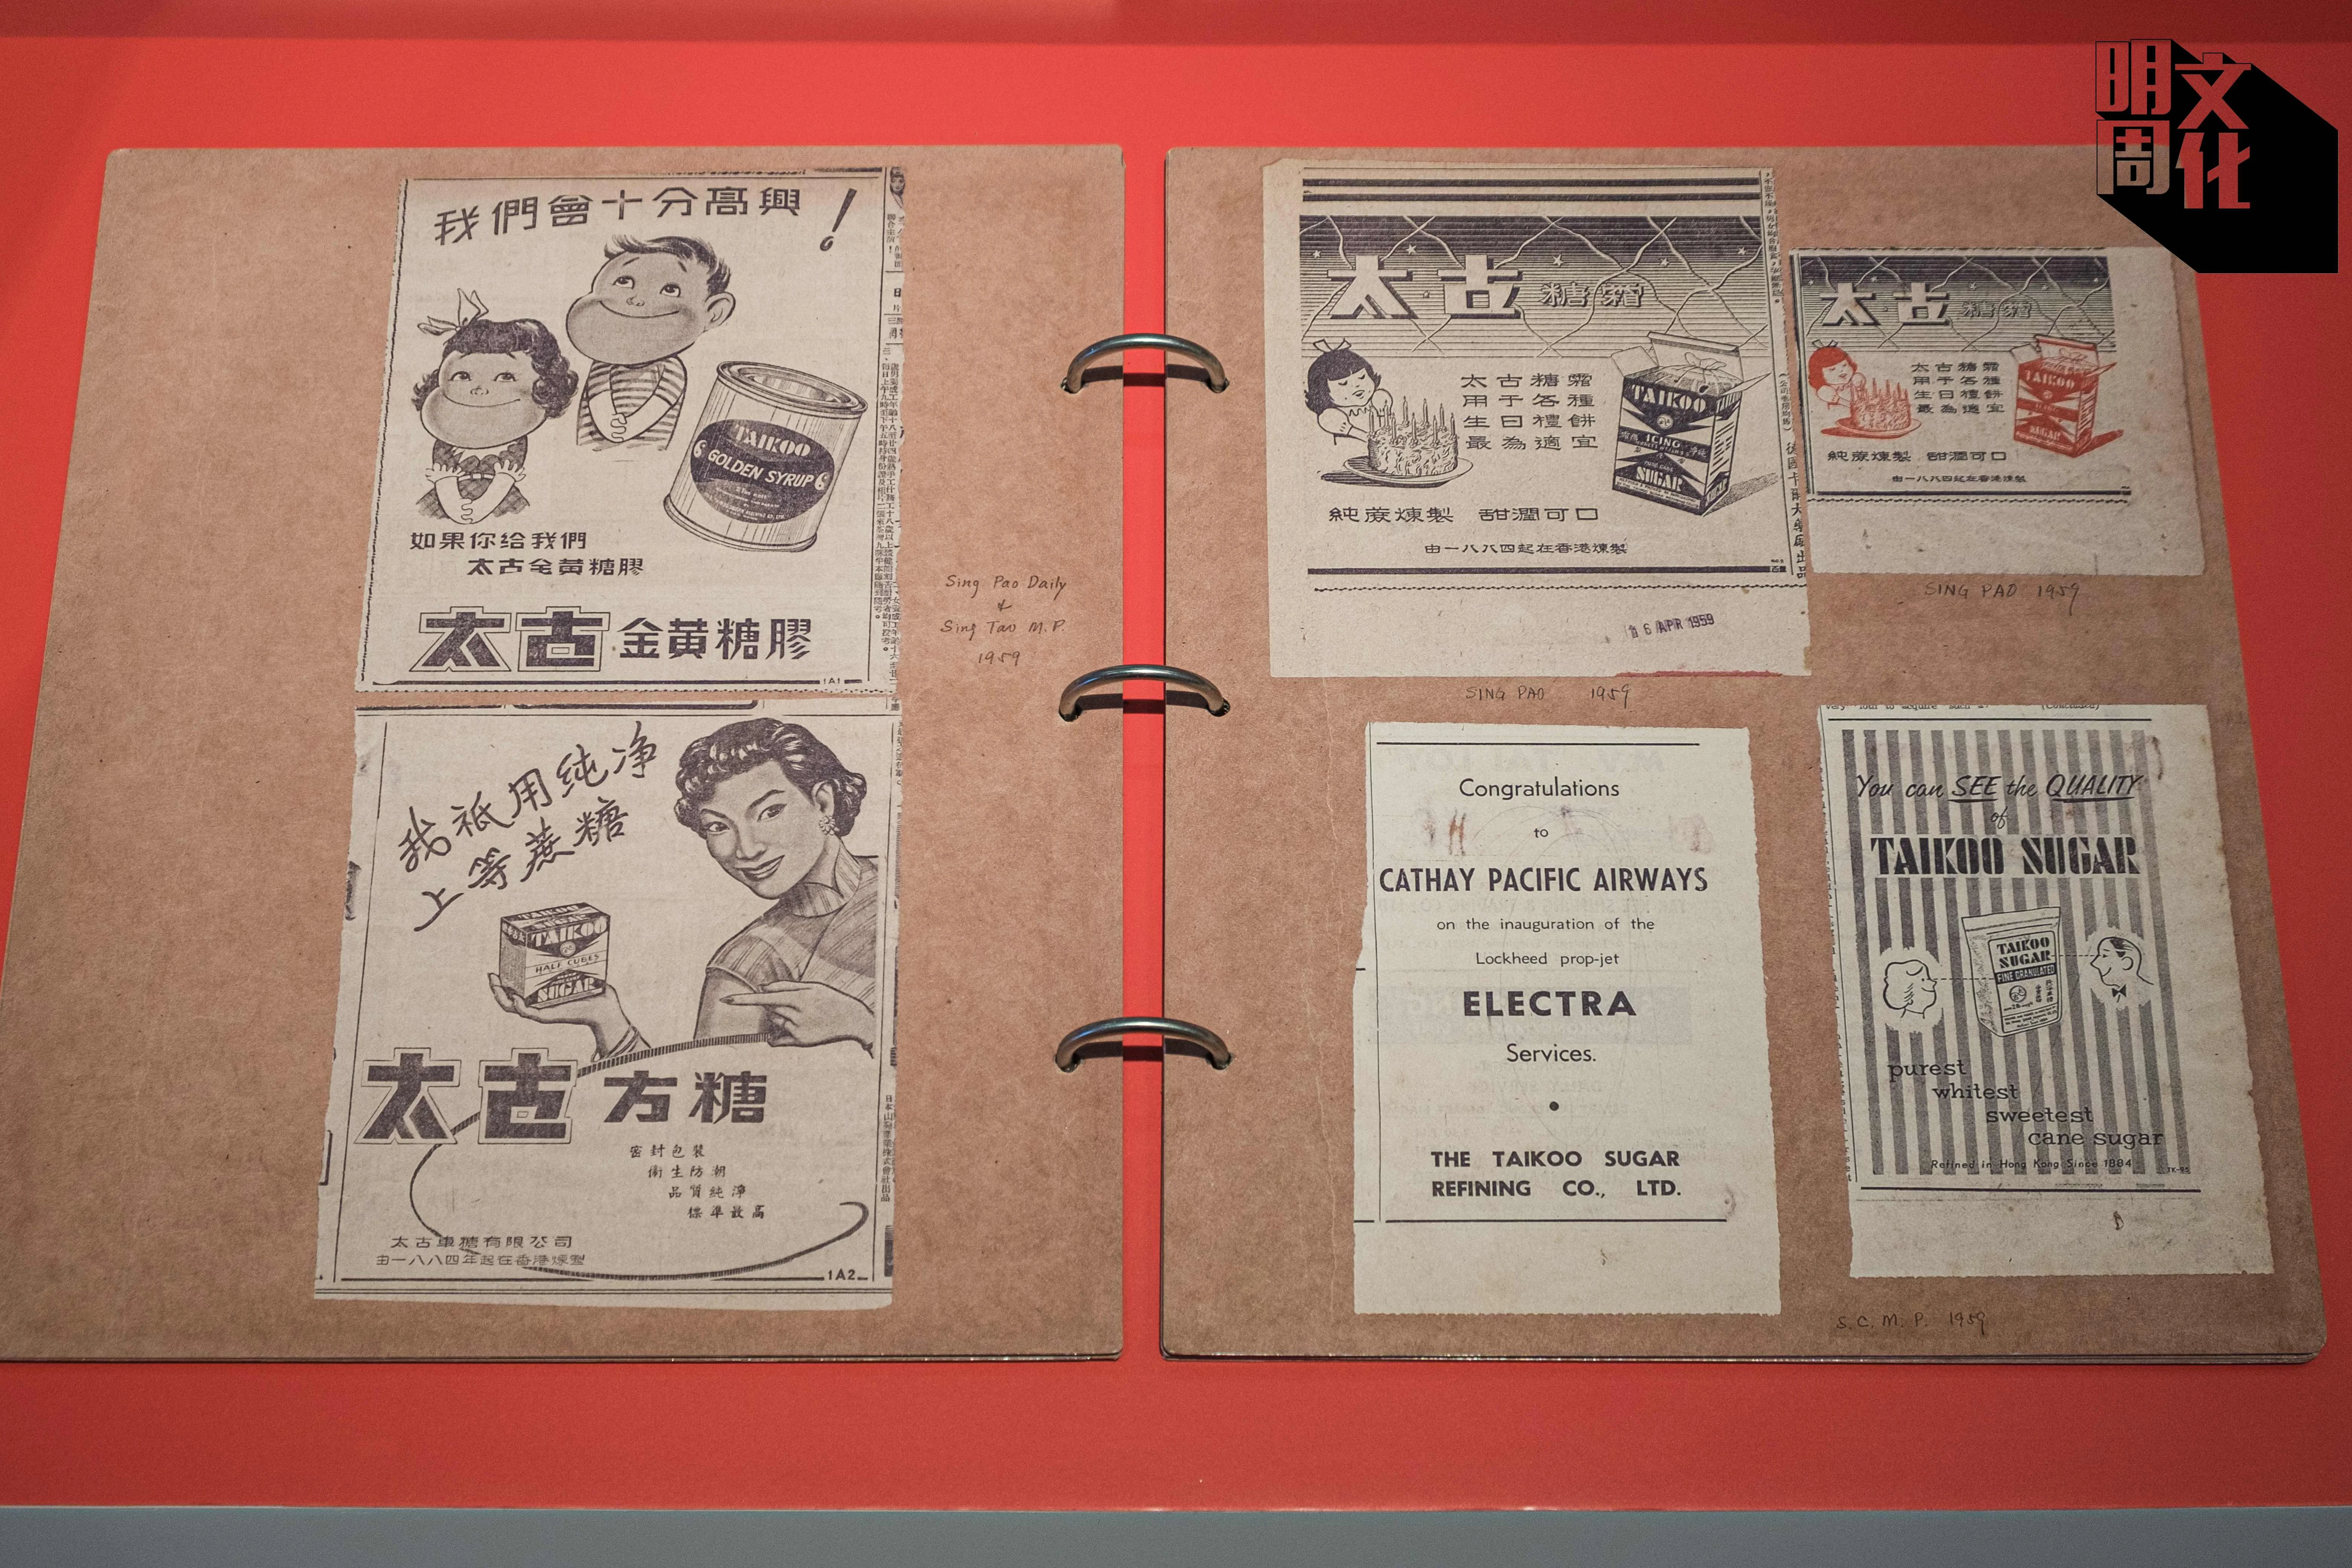 明周文化
我們會十分高興！
TAIKOO
GOLDEN SYRUP
如果你给我們
太古金黃糖膠
太古金黃糖膠
1A1
Sing Pao Daily
&
Sing Tao M.P.
1959
我祇用纯净
上等蔗糖
TAIKOO
SUGAR
TAIKOO
HALF CUBES
SUGAR
太古方糖
密封包裝
衛生防潮
品質純淨
標準最高
太古車糖有限公司
由一八八四年起在香港煉製
1A2
太古糖霜
太古糖霜
用于各種
生日禮餅
最為適宜
TAIKOO
ICING
SUGAR
純蔗煉製 甜潤可口
由一八八四起在香港煉製
16 APR 1959
SING PAO 1959
太古糖霜
太古糖霜
用于各種
生日禮餅
最為適宜
TAIKOO
SUGAR
純蔗煉製 甜潤可口
由一八八四起在香港煉製
SING PAO 1959
Congratulations
to
CATHAY PACIFIC AIRWAYS
on the inauguration of the
Lockheed prop-jet
ELECTRA
Services.
THE TAIKOO SUGAR
REFINING CO., LTD.
You can SEE the QUALITY
of
TAIKOO SUGAR
TAIKOO
SUGAR
FINE GRANULATED
purest
whitest
sweetest
cane sugar
Refined in Hong Kong Since 1884
S.C.M.P. 1959